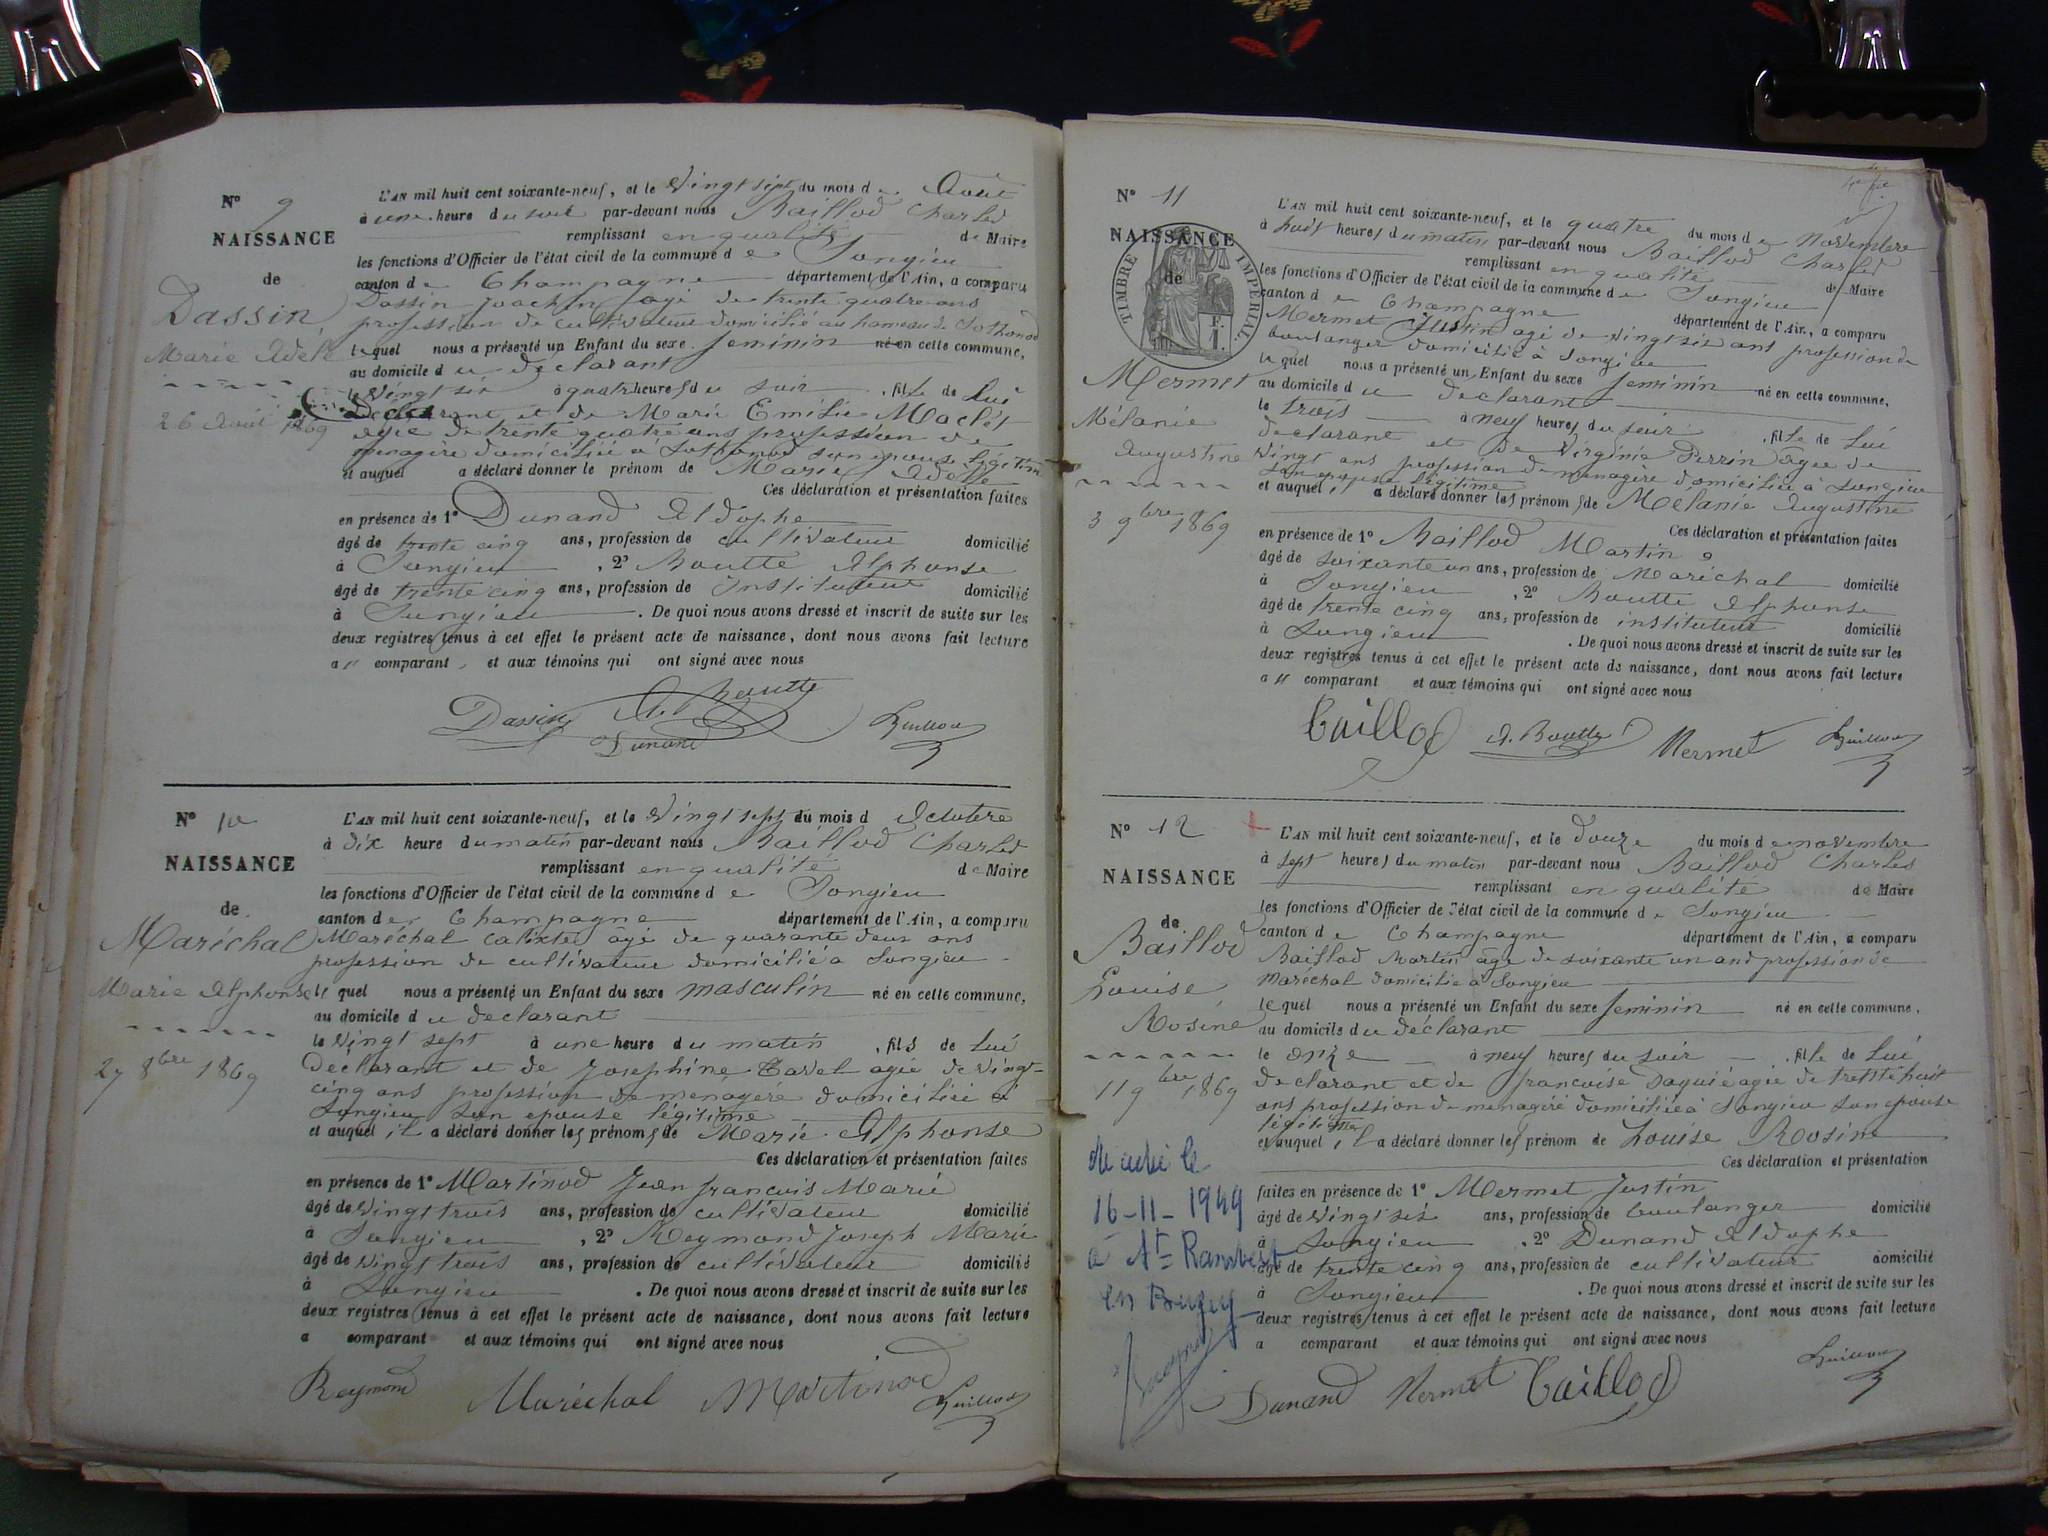 N° 9
NAISSANCE
de
Dassin
Marie Adèle
26 Août 1869
L'AN mil huit cent soixante-neuf, et le Vingt sept du mois d Août
à une heure du soir par-devant nous Baillod Charles
remplissant en qualité de Maire
les fonctions d'Officier de l'état civil de la commune de Songieu
canton de Champagne département de l'Ain, a comparu
Dassin Joachin âgé de trente quatre ans
profession de cultivateur domicilié au hameau de Sothonod
lequel nous a présenté un Enfant du sexe feminin né en cette commune,
au domicile du déclarant
le Vingt six à quatre heures du soir , fille de Lui
Déclarant et de Marie Emilie Maclet
agée de trente quatre ans profession de
menagère domiciliée a Sothonod son epouse légitime
et auquel a déclaré donner le prénom de Marie Adelle
Ces déclaration et présentation faites
en présence de 1° Dunand Aldophe
âgé de trente cinq ans, profession de cultivateur domicilié
à Songieu , 2° Boutte Alphonse
âgé de trente cinq ans, profession de Instituteur domicilié
à Songieu . De quoi nous avons dressé et inscrit de suite sur les
deux registres tenus à cet effet le présent acte de naissance, dont nous avons fait lecture
a u comparant , et aux témoins qui ont signé avec nous
Dassin A. Boutte Baillod
Dunand
N° 10
NAISSANCE
de
Maréchal
Marie Alphonse
27 8bre 1869
L'AN mil huit cent soixante-neuf, et le Vingt sept du mois d Octobre
à dix heure du matin par-devant nous Baillod Charles
remplissant en qualité de Maire
les fonctions d'Officier de l'état civil de la commune de Songieu
canton de Champagne département de l'Ain, a comparu
Maréchal Calixte âgé de quarante deux ans
profession de cultivateur domicilié a Songieu
le quel nous a présenté un Enfant du sexe masculin né en cette commune,
au domicile du declarant
le Vingt sept à une heure du matin , fils de Lui
Déclarant et de Josephine Tavel agée de vingt-
cinq ans profession de menagère domiciliée a
Songieu son epouse légitime
et auquel il a déclaré donner les prénoms de Marie Alphonse
Ces déclaration et présentation faites
en présence de 1° Martinod Jean françois Marie
âgé de vingt trois ans, profession de cultivateur domicilié
à Songieu , 2° Reymond Joseph Marie
âgé de vingt trois ans, profession de cultivateur domicilié
à Songieu . De quoi nous avons dressé et inscrit de suite sur les
deux registres tenus à cet effet le présent acte de naissance, dont nous avons fait lecture
a comparant et aux témoins qui ont signé avec nous
Reymond Maréchal Martinod Baillod
N° 11
NAISSANCE
de
TIMBRE IMPERIAL
1 F.
Mermet
Mélanie
Augustine
3 9bre 1869
L'AN mil huit cent soixante-neuf, et le quatre du mois de Novembre
à huit heures du matin par-devant nous Baillod Charles
remplissant en qualité de Maire
les fonctions d'Officier de l'état civil de la commune de Songieu
canton de Champagne département de l'Ain, a comparu
Mermet Justin agé de vingt six ans profession de
boulanger domicilié à Songieu
le quel nous a présenté un Enfant du sexe feminin né en cette commune,
au domicile du declarant
le trois à neuf heures du soir , fille de Lui
declarant et de Virginie Perrin agée de
vingt ans profession de menagère domiciliée à Songieu
son epouse légitime
et auquel il a déclaré donner les prénoms de Mélanie Augustine
Ces déclaration et présentation faites
en présence de 1° Baillod Martin
âgé de soixante un ans, profession de Maréchal domicilié
à Songieu , 2° Boutte Alphonse
âgé de trente cinq ans, profession de instituteur domicilié
à Songieu . De quoi nous avons dressé et inscrit de suite sur les
deux registres tenus à cet effet le présent acte de naissance, dont nous avons fait lecture
a u comparant et aux témoins qui ont signé avec nous
Baillod A. Boutte Mermet Baillod
N° 12
NAISSANCE
de
Baillod
Louise
Rosine
11 9bre 1869
Marié le
16-11-1949
à St Rambert
en Bugey
L'AN mil huit cent soixante-neuf, et le douze du mois de novembre
à sept heures du matin par-devant nous Baillod Charles
remplissant en qualité de Maire
les fonctions d'Officier de l'état civil de la commune de Songieu
canton de Champagne département de l'Ain, a comparu
Baillod Martin âgé de soixante un ans profession de
Maréchal domicilié à Songieu
le quel nous a présenté un Enfant du sexe feminin né en cette commune,
au domicile du déclarant
le onze à neuf heures du soir , fille de Lui
declarant et de françoise Daguié agée de trente huit
ans profession de menagère domiciliée à Songieu son epouse
légitime
et auquel il a déclaré donner les prénom de Louise Rosine
Ces déclaration et présentation
faites en présence de 1° Mermet Justin
âgé de vingt six ans, profession de boulanger domicilié
à Songieu , 2° Dunand Aldophe
âgé de trente cinq ans, profession de cultivateur domicilié
à Songieu . De quoi nous avons dressé et inscrit de suite sur les
deux registres tenus à cet effet le présent acte de naissance, dont nous avons fait lecture
a comparant et aux témoins qui ont signé avec nous
Dunand Mermet Baillod Baillod